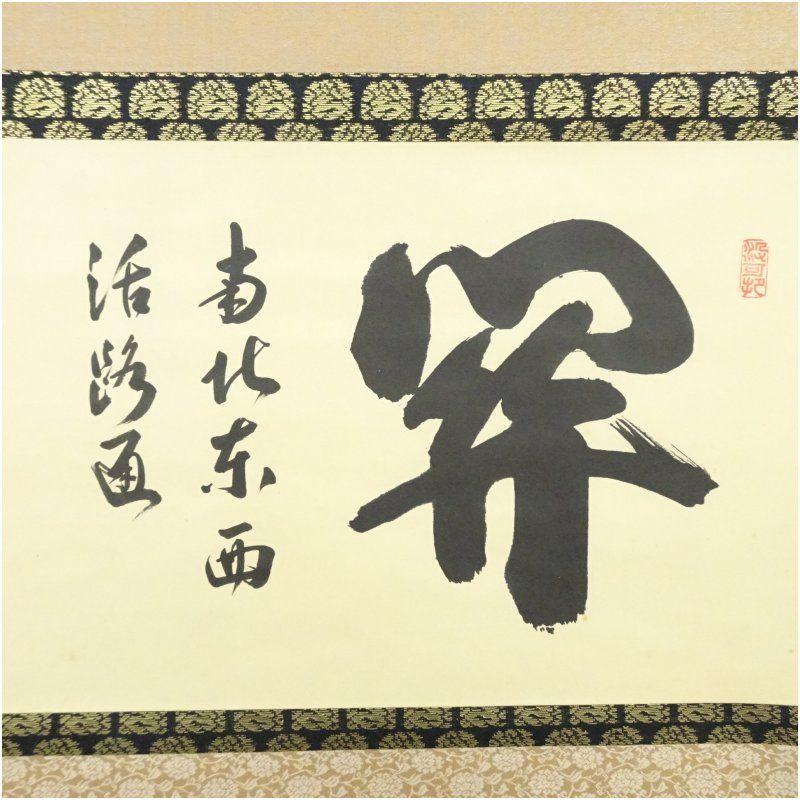 関
南北東西
活路通